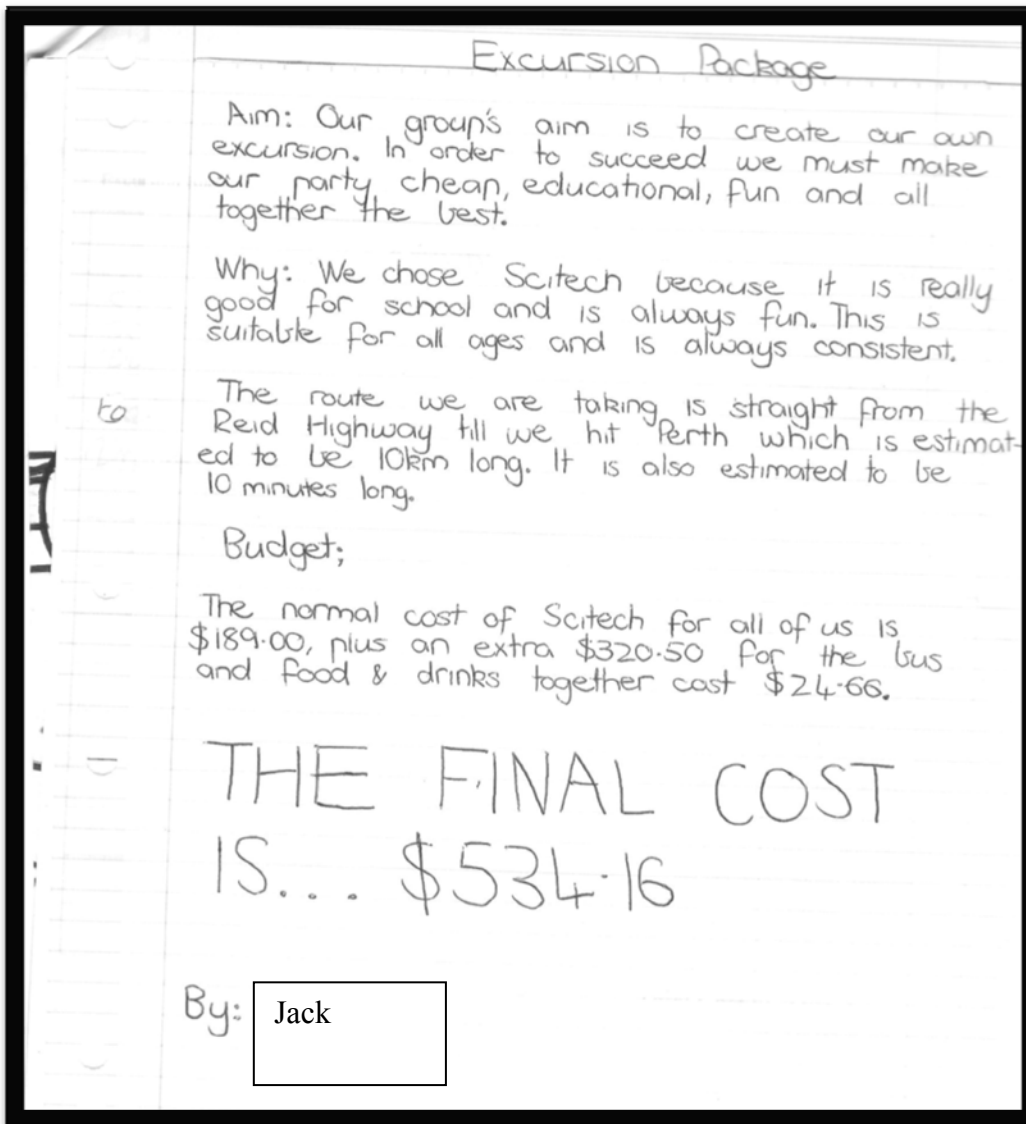 Excursion Package
Aim: Our group's aim is to create our own
excursion. In order to succeed we must make
our party cheap, educational, fun and all
together the best.
Why: We chose Scitech because it is really
good for school and is always fun. This is
suitable for all ages and is always consistent.
The route we are taking is straight from the
to
Reid Highway till we hit Perth which is estimat-
ed to be 10km long. It is also estimated to be
10 minutes long.
Budget;
The normal cost of Scitech for all of us is
$189.00, plus an extra $320.50 for the bus
and food & drinks together cost $24.66.
THE FINAL COST
IS... $534.16
By: Jack